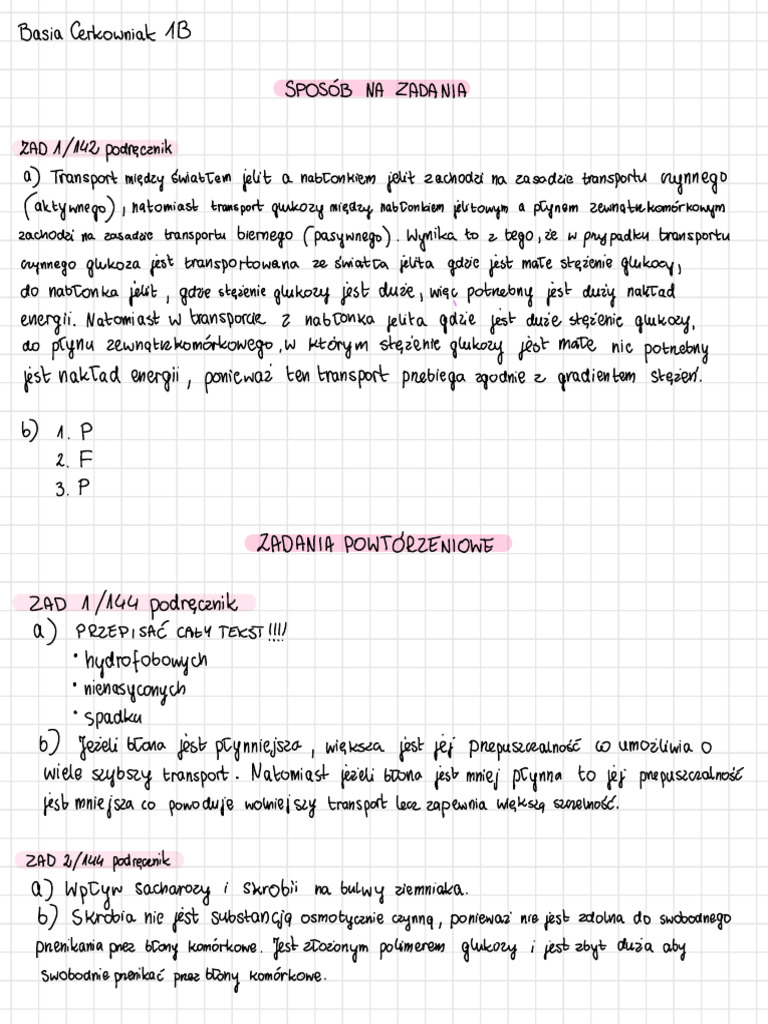 Basia Cerkowniak 1B
SPOSÓB NA ZADANIA
ZAD 1/142 podręcznik
a) Transport między światłem jelit a nabłonkiem jelit zachodzi na zasadzie transportu czynnego
(aktywnego), natomiast transport glukozy między nabłonkiem jelitowym a płynem zewnątrzkomórkowym
zachodzi na zasadzie transportu biernego (pasywnego). Wynika to z tego, że w przypadku transportu
czynnego glukoza jest transportowana ze światła jelita gdzie jest małe stężenie glukozy,
do nabłonka jelit, gdzie stężenie glukozy jest duże, więc potrzebny jest duży nakład
energii. Natomiast w transporcie z nabłonka jelita gdzie jest duże stężenie glukozy,
do płynu zewnątrzkomórkowego, w którym stężenie glukozy jest małe nic potrzebny
jest nakład energii, ponieważ ten transport przebiega zgodnie z gradientem stężeń.
b) 1. P
2. F
3. P
ZADANIA POWTÓRZENIOWE
ZAD 1/144 podręcznik
a) PRZEPISAĆ CAŁY TEKST!!!!
• hydrofobowych
• nienasyconych
• spadku
b) Jeżeli błona jest płynniejsza, większa jest jej przepuszczalność co umożliwia o
wiele szybszy transport. Natomiast jeżeli błona jest mniej płynna to jej przepuszczalność
jest mniejsza co powoduje wolniejszy transport lecz zapewnia większą szczelność.
ZAD 2/144 podręcznik
a) Wpływ sacharozy i skrobii na bulwy ziemniaka.
b) Skrobia nie jest substancją osmotycznie czynną, ponieważ nie jest zdolna do swobodnego
przenikania przez błony komórkowe. Jest złożonym polimerem glukozy i jest zbyt duża aby
swobodnie przenikać przez błony komórkowe.